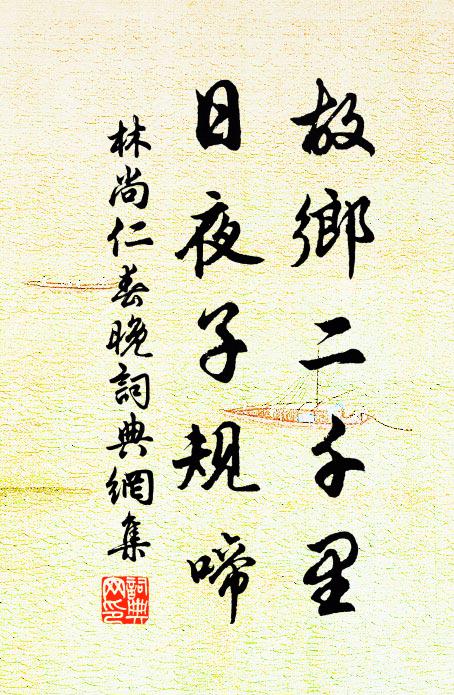 故鄉二千里
日夜子規啼
林尚仁春晚詞典網集
詞典
网印